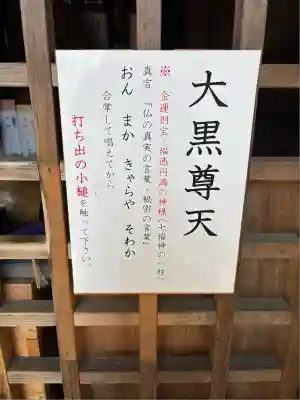 大黒尊天
※ 金運財宝・福徳円満の神様（七福神の一柱）
真言 「仏の真実の言葉・秘密の言葉」
おん まか きゃらや そわか
合掌して唱えてから
打ち出の小槌を触って下さい。